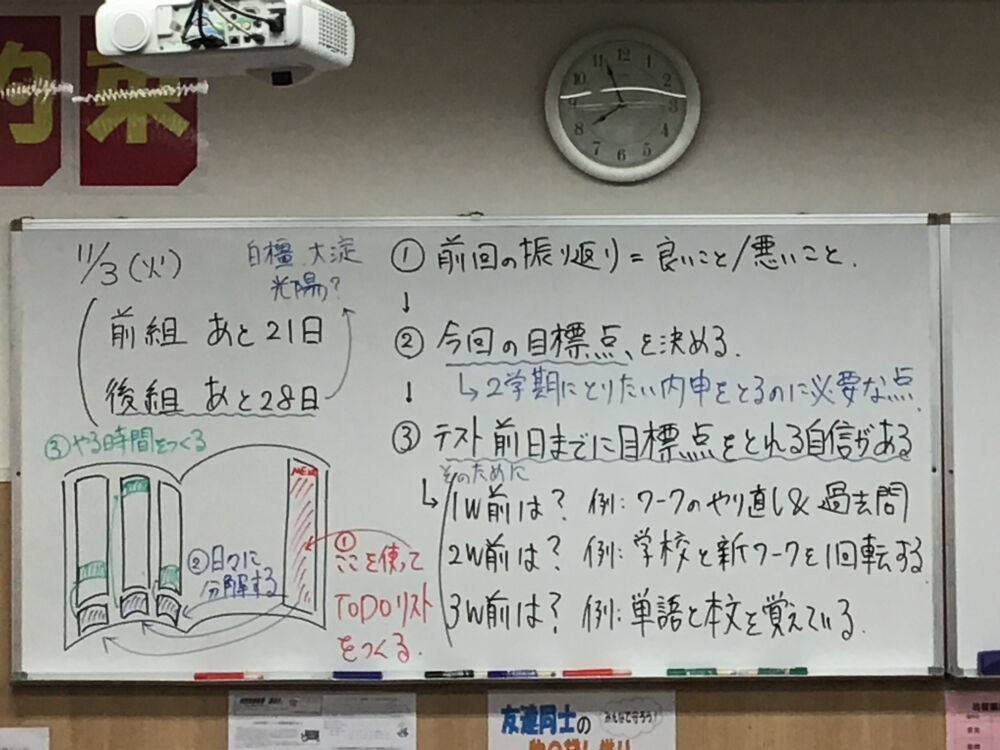 約束
12 1 2 3 4 5 6 7 8 9 10 11
11/3(火)
白橿 大淀
光陽?
前組 あと21日
後組 あと28日
③やる時間をつくる
②日々に
分解する
MEMO
①
ここを使って
TODOリスト
をつくる.
① 前回の振り返り=良いこと/悪いこと.
↓
② 今回の目標点、を決める.
↳2学期にとりたい内申をとるのに必要な点
↓
③ テスト前日までに目標点をとれる自信がある
そのために
↳ 1W前は? 例:ワークのやり直し&過去問
2W前は? 例:学校と新ワークを1回転する
3W前は? 例:単語と本文を覚えている.
友達同士の
みんなで守ろう!
物の貸し借り